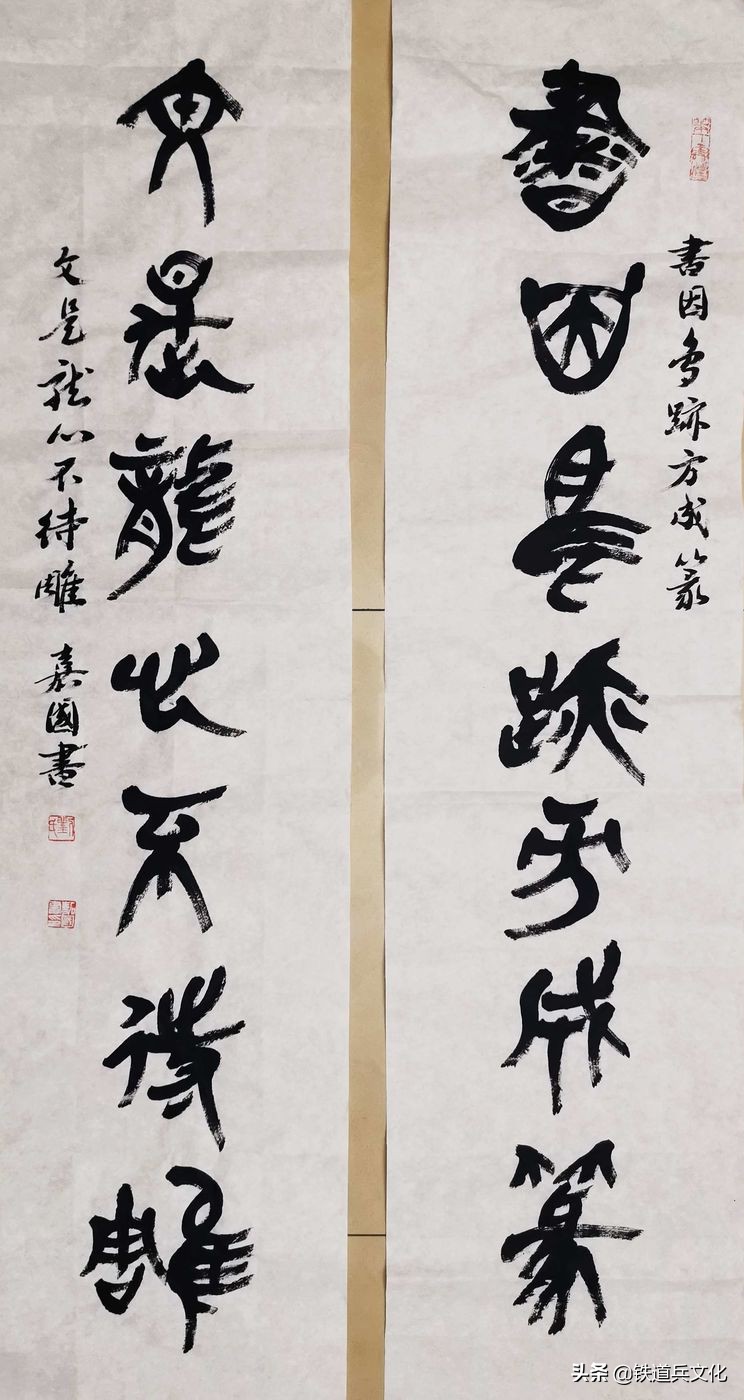 書因鳥跡方成篆
書因鳥跡方成篆
文是龍心不待雕
文是龍心不待雕 嘉國書
头条 @铁道兵文化